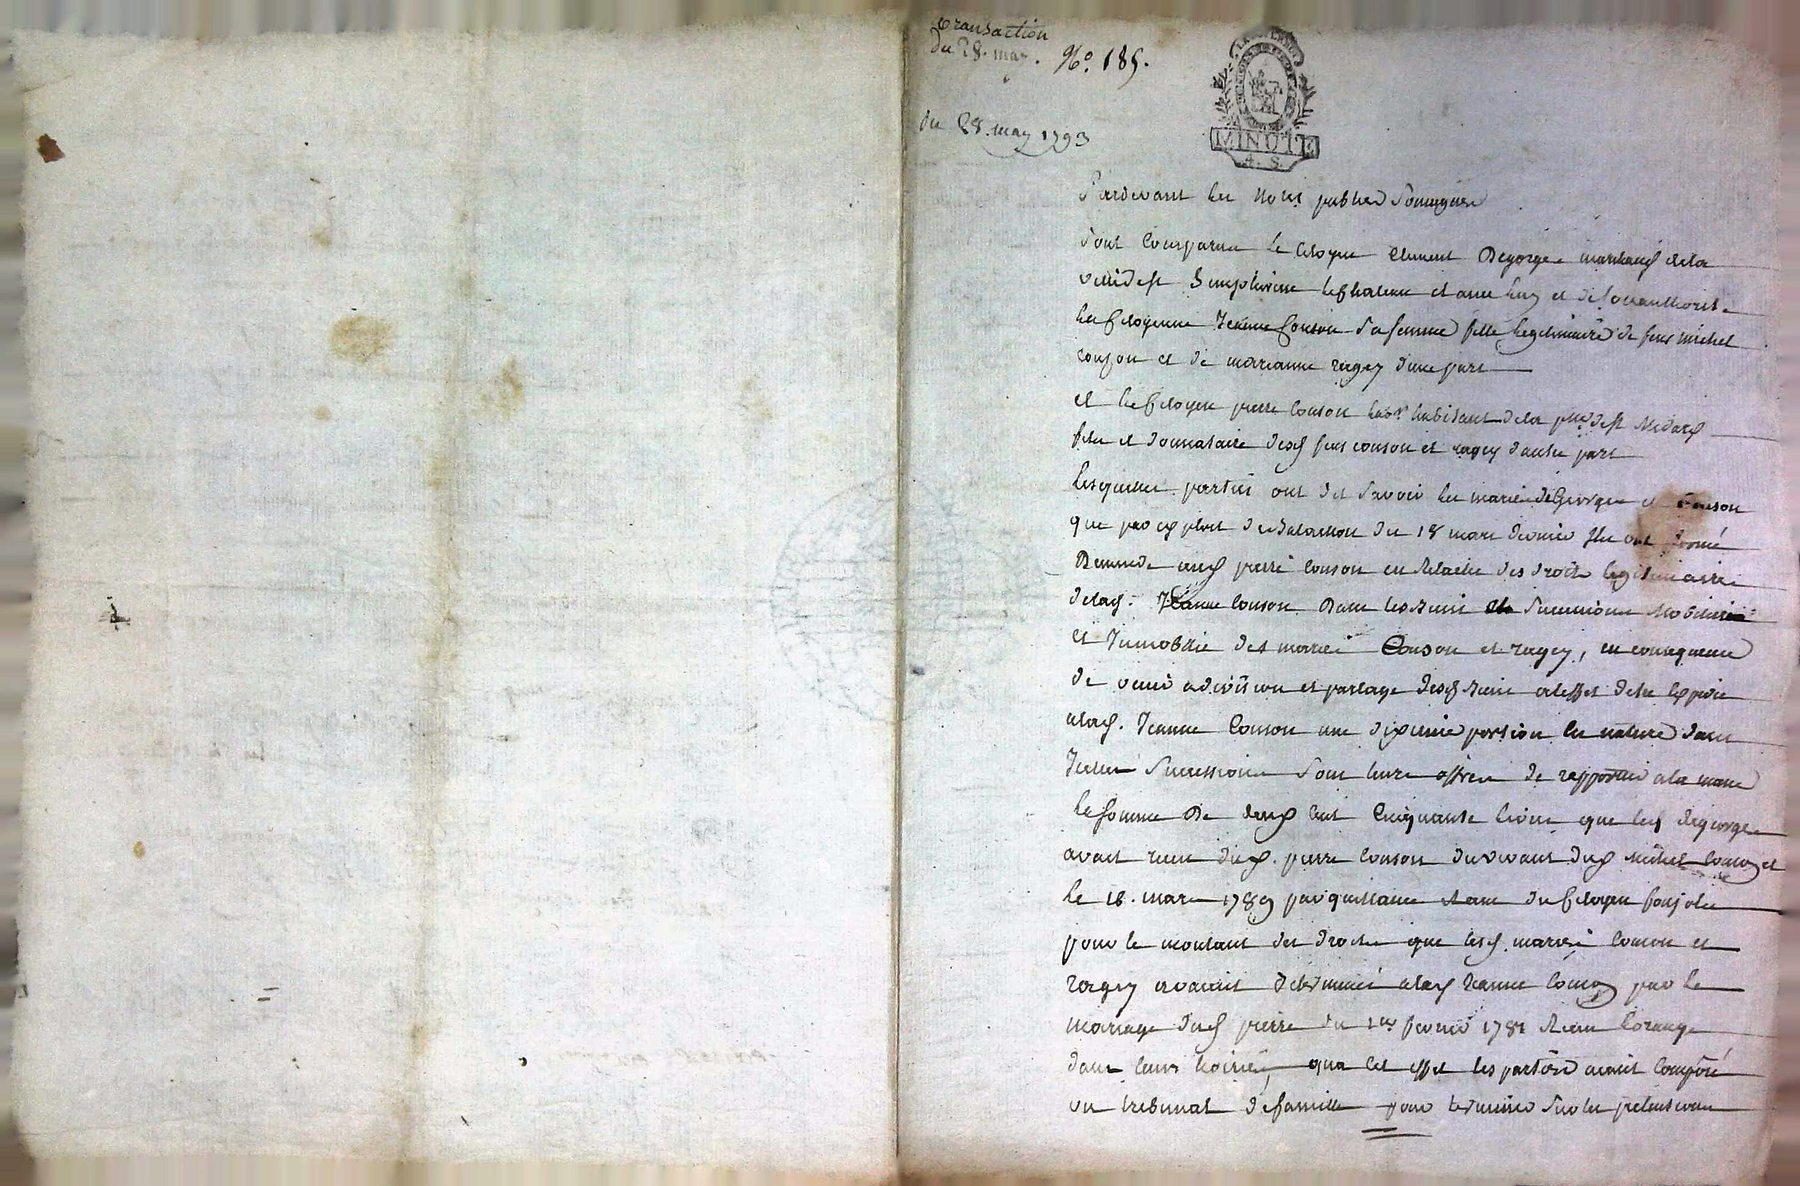 transaction
du 28. may. No. 185.
du 28. may 1793
MINUTE
4. S.
Pardevant les No.res publics soussignes
sont comparus le citoyen Clement Degorge marchand de la
ville de st Simphorien le chateau et avec luy et de son authorité
la citoyenne Jeanne Couson sa femme fille legitimaire de feus michel
couson et de marianne ragey d'une part
et le citoyen pierre Couson lab.r habitant de la p.sse de st Medard
fils et donnataire desd feus couson et ragey d'autre part
lesquelles parties ont dit savoir les mariés deGeorge et Couson
que par exploit de du 18 mars dernier ils ont formé
Demande aud pierre Couson en des droits legitimaire
de lad. Jeanne Couson Dans les successions Mobiliaire
et Immobiliaire des mariés Couson et ragey, en consequence
de venir a division et partage desd a l'effet d'etre expedie
a lad. Jeanne Couson une dixieme portion en nature dans
successions sous leurs offres de rapporter a la masse
la somme De deux cent cinquante livres que led degeorge
avait recu dud. pierre Couson du vivant dud michel Couson et
le 18. mars 1789 par quittance du Citoyen ponjolu
pour le montant des droits que lesd. mariés Couson et
Ragey avaient a lad Jeanne Couson par le
mariage dud pierre du 1er fevrier 1781
dans leurs hoiries, qua cet effet les parties avait composé
un tribunal de famille pour terminer sur les pretentions